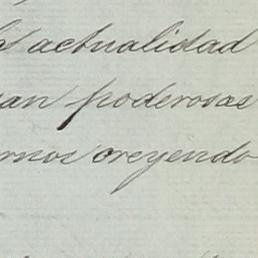 actualidad
an poderosas
rnos creyendo